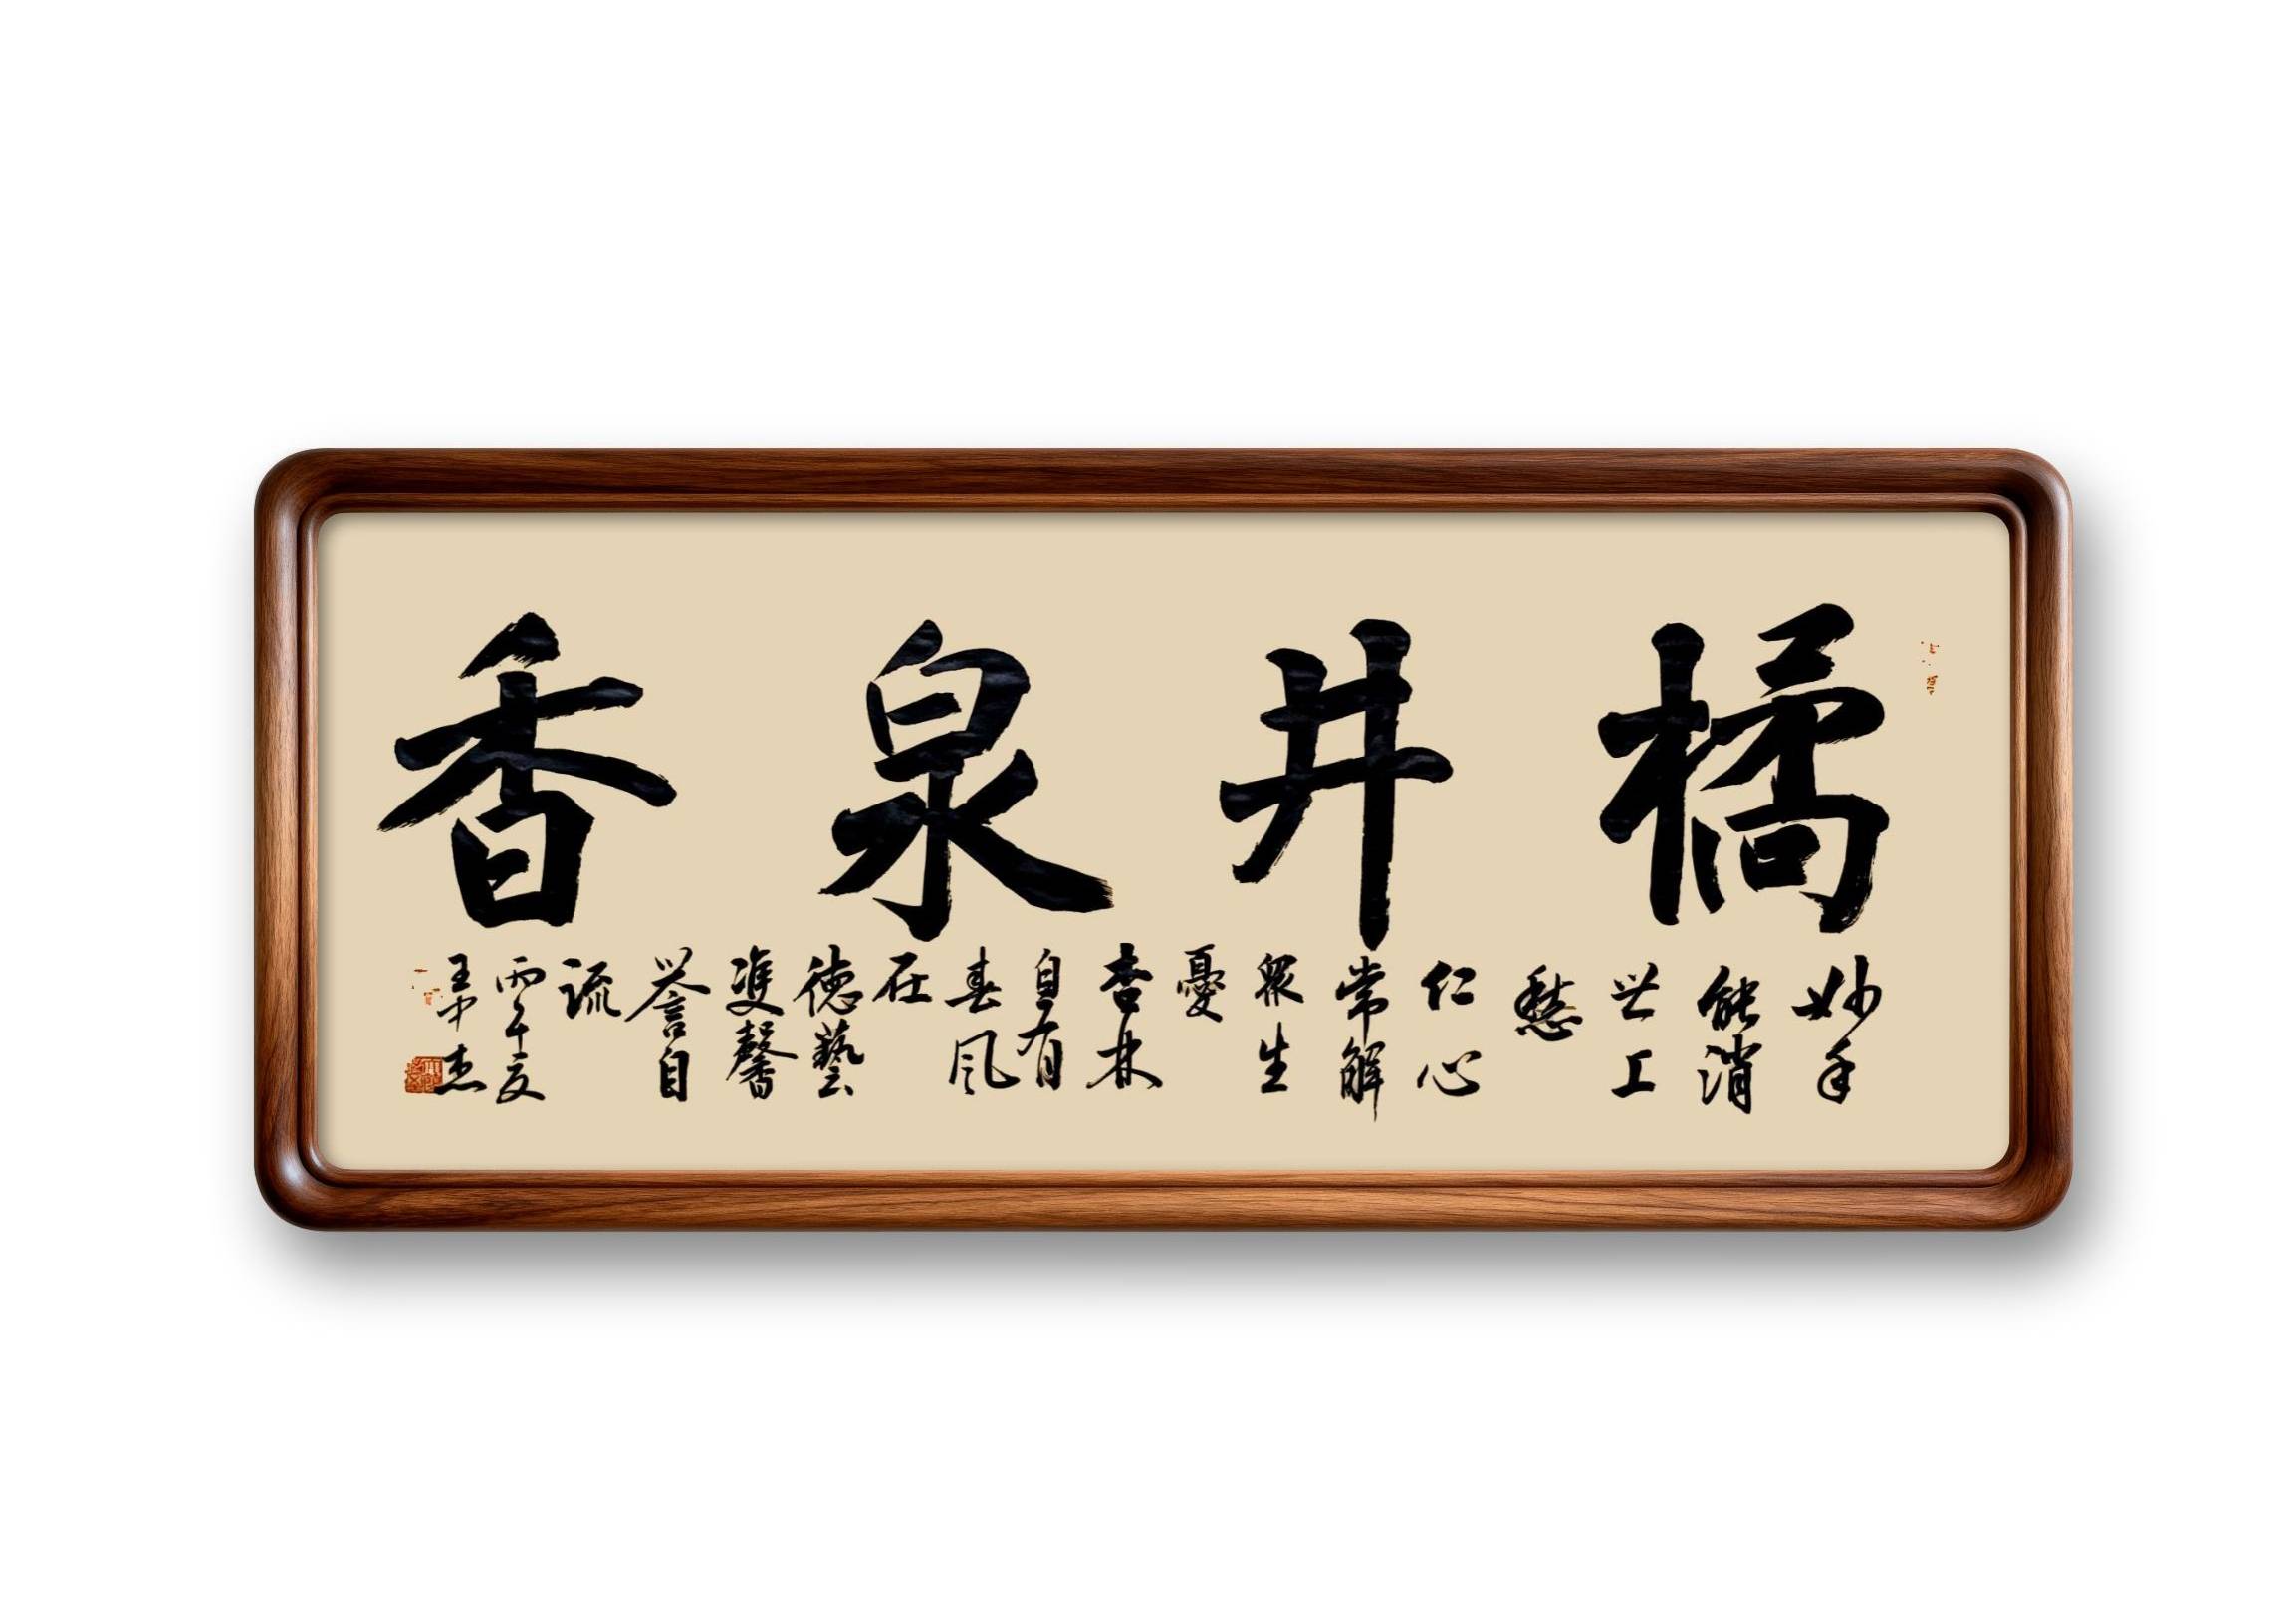 橘井泉香
妙手
能消
世工
愁
仁心
常解
衆生
憂
杏林
自有
春風
在
徳藝
雙馨
誉自
流
丙午夏
王中杰